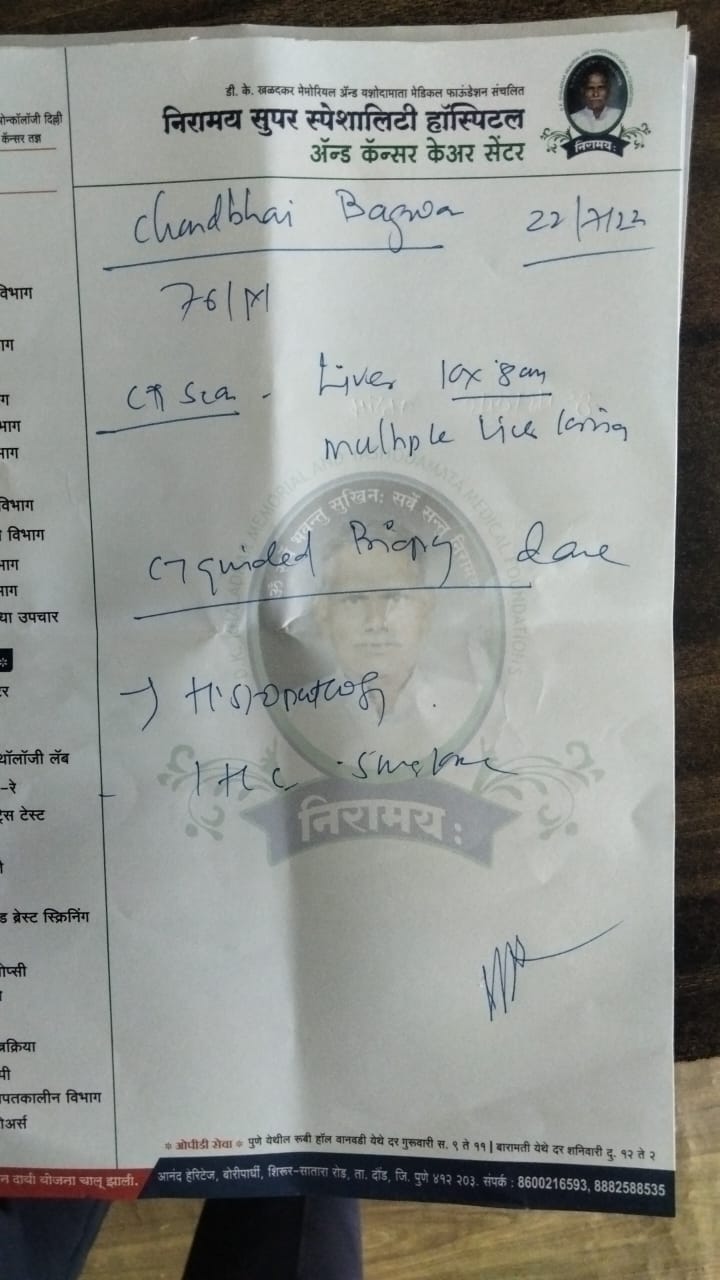 डी. के. खळदकर मेमोरियल ॲन्ड यशोदामाता मेडिकल फाऊंडेशन संचलित
निरामय सुपर स्पेशालिटी हॉस्पिटल
ॲन्ड कॅन्सर केअर सेंटर
निरामयः
chandbhai 22/7/22
76/M
CT Scan - Liver 10x8cm
multiple liver
CT guided Biopsy done
→ Histopathology
IHC
निरामयः
ोन्कॉलॉजी दिल्ली
कॅन्सर तज्ञ
विभाग
ाग
ग
भाग
भाग
विभाग
विभाग
भाग
ाग
या उपचार
र
थॉलॉजी लॅब
-रे
ट्रेस टेस्ट
ड ब्रेस्ट स्क्रिनिंग
ोप्सी
प्रक्रिया
पी
पतकालीन विभाग
ोअर्स
* ओपीडी सेवा * पुणे येथील रूबी हॉल वानवडी येथे दर गुरूवारी स. ९ ते ११ | बारामती येथे दर शनिवारी दु. १२ ते २
योजना चालू झाली.
आनंद हेरिटेज, बोरीपार्धी, शिरूर-सातारा रोड, ता. दौंड, जि. पुणे ४१२ २०३. संपर्क : 8600216593, 8882588535